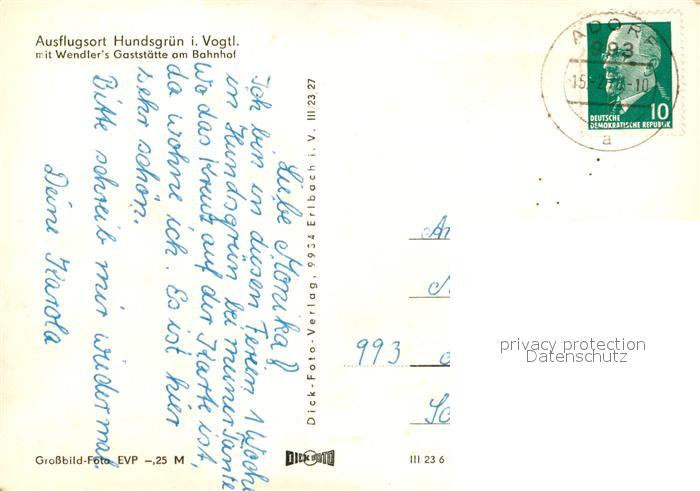 Ausflugsort Hundsgrün i. Vogtl.
mit Wendler's Gaststätte am Bahnhof
Liebe Monika!
Ich bin in diesen Ferien 1 Woche
in Hundsgrün bei meiner Tante
Wo das Kreuz auf der Karte ist,
da wohne ich. Es ist hier
sehr schön.
Bitte schreib mir wieder mal.
Deine Karola
Großbild-Foto EVP -,25 M
Dick-Foto-Verlag, 9934 Erlbach i. V. III 23 27
DICK FOTO
III 23 6
ADORF
993
10
DEUTSCHE
DEMOKRATISCHE REPUBLIK
a
An
993
privacy protection
Datenschutz